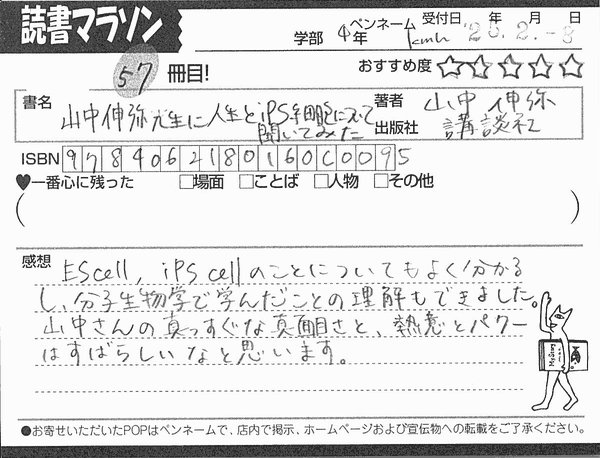 読書マラソン
学部 4年 ペンネーム kmh 受付日 '20年2.月-8日
57冊目!
おすすめ度 ☆☆☆☆☆
書名 山中伸弥先生に人生とiPS細胞について
聞いてみた
著者 山中 伸弥
出版社 講談社
ISBN 9784062180160C0095
♥一番心に残った □場面 □ことば □人物 □その他
( )
感想 ES cell, iPS cellのことについてもよく分かる
し、分子生物学で学んだことの理解もできました。
山中さんの真っすぐな真面目さと、熱意とパワー
はすばらしいなと思います。
●お寄せいただいたPOPはペンネームで、店内で掲示、ホームページおよび宣伝物への転載をご了承ください。